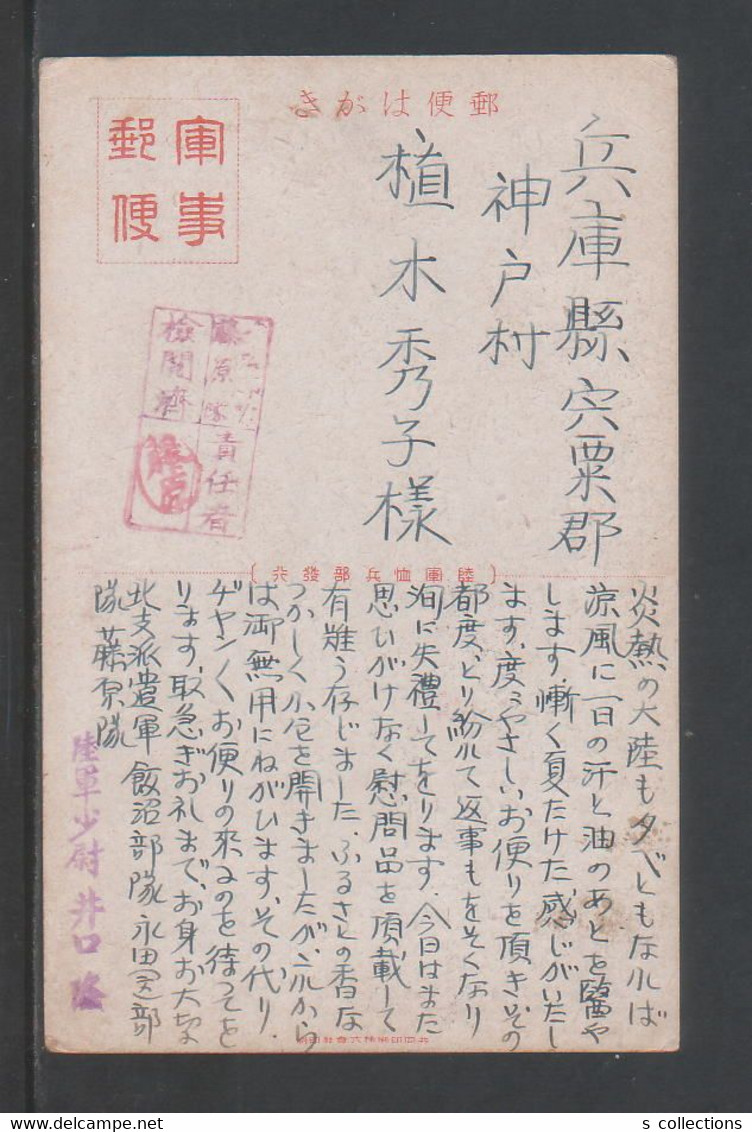 郵便はがき
軍事
郵便
兵庫縣宍粟郡
神戸村
植木秀子様
藤原隊
責任者
檢閲濟
陸軍恤兵部發行
炎熱の大陸も夕べともなれば
涼風に一日の汗と油のあとを醫や
します、慚く夏たけた感じがいたし
ます、度々やさしいお便りを頂きその
都度、とり紛れて返事もをそくなり
洵に失禮してをります、今日はまた
思ひがけなく慰問品を頂載して
有難う存じました、ふるさとの香な
つかしく小包を開きましたがこれから
は御無用にねがひます、その代り、
ヂヤンくお便りの来るのを待ってを
ります、取急ぎお礼まで、お身お大切
北支派遣軍 飯沼部隊 永田(定)部
隊 藤原隊
陸軍少尉 井口 隆
s collections